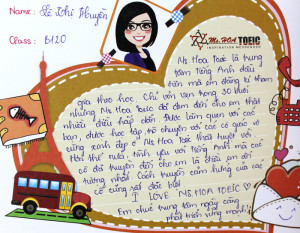 Name: Lê Thị Huyền
Class: B120
Ms.HOA TOEIC
INSPIRATION MESSENGER
Ms Hoa Toeic là trung
tâm Tiếng Anh đầu
tiên mà em đăng kí tham
gia theo học. Chỉ vỏn vẹn trong 30 buổi
nhưng Ms Hoa Toeic đã đem đến cho em thật
nhiều điều hấp dẫn. Được làm quen với các
bạn, được học tập trò chuyện với các cô giáo vô
cùng xinh đẹp ở Ms Hoa Toeic. Nhiệt huyết với
thế nữa, tình yêu với Tiếng Anh mà các
cô đã truyền đến cho em là điều em
tưởng nhất. Cách truyền cảm hứng của các
cô cũng rất đặc biệt
I LOVE MS HOA TOEIC
Em chúc trung tâm ngày càng
phát triển vững mạnh!